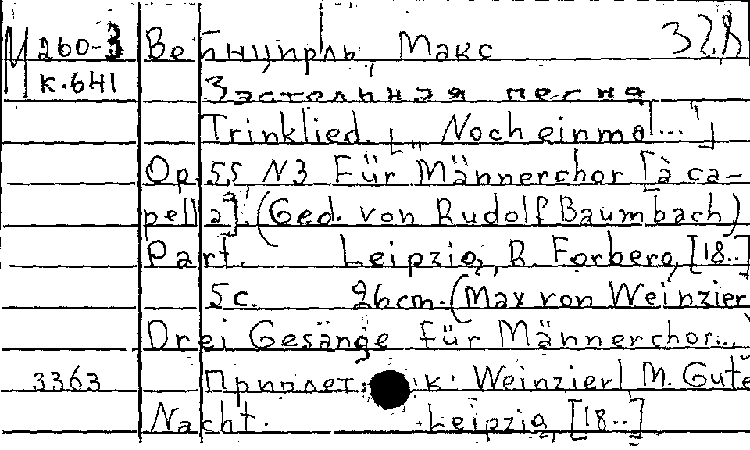 М 260-3 Вейнцирль, Макс 328
к.641
Застольная песня
Trinklied. [„Noch einmal..."]
Op. 55 N3 Für Männerchor [à ca-
pella]. (Ged. von Rudolf Baumbach)
Part. Leipzig, R. Forberg, [18..]
5 с. 26 cm. (Max von Weinzierl
Drei Gesänge für Männerchor...
3363 Приплет. к: Weinzierl M. Gute
Nacht. Leipzig, [18..]